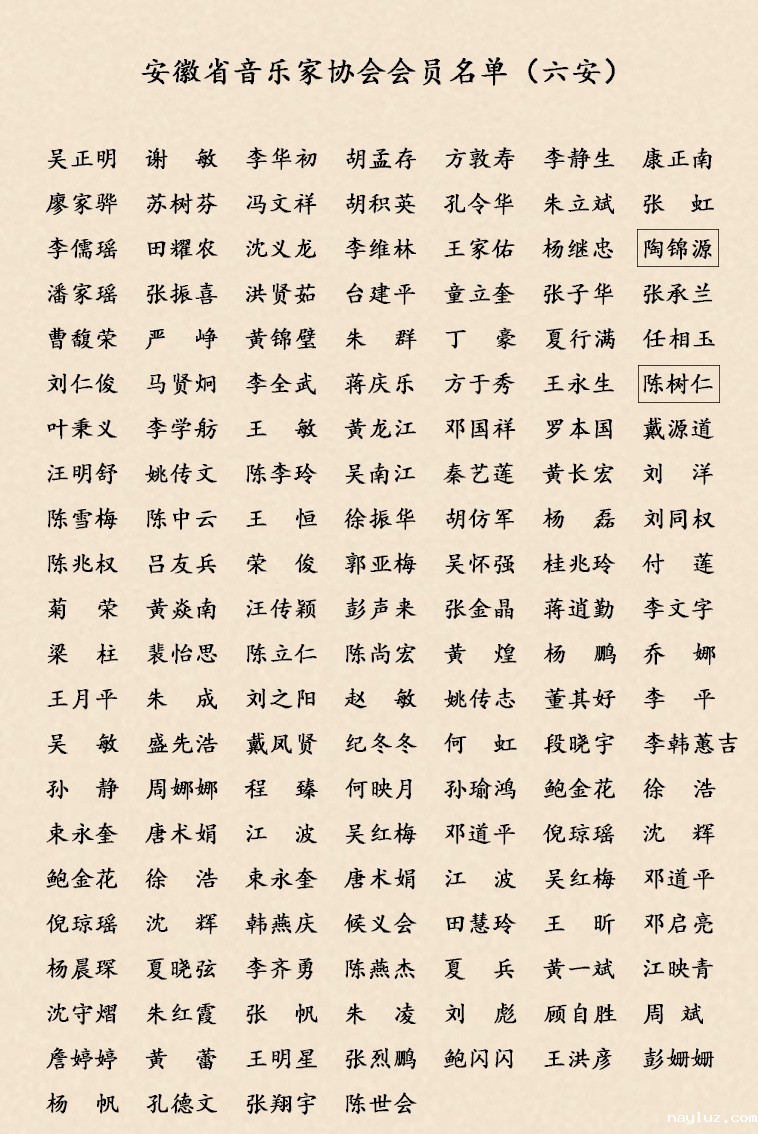 安徽省音乐家协会会员名单（六安）
吴正明 谢敏 李华初 胡孟存 方敦寿 李静生 康正南
廖家骅 苏树芬 冯文祥 胡积英 孔令华 朱立斌 张虹
李儒瑶 田耀农 沈义龙 李维林 王家佑 杨继忠 陶锦源
潘家瑶 张振喜 洪贤茹 台建平 童立奎 张子华 张承兰
曹馥荣 严峥 黄锦璧 朱群 丁豪 夏行满 任相玉
刘仁俊 马贤炯 李全武 蒋庆乐 方于秀 王永生 陈树仁
叶秉义 李学舫 王敏 黄龙江 邓国祥 罗本国 戴源道
汪明舒 姚传文 陈李玲 吴南江 秦艺莲 黄长宏 刘洋
陈雪梅 陈中云 王恒 徐振华 胡仿军 杨磊 刘同权
陈兆权 吕友兵 荣俊 郭亚梅 吴怀强 桂兆玲 付莲
菊荣 黄焱南 汪传颖 彭声来 张金晶 蒋逍勤 李文字
梁柱 裴怡思 陈立仁 陈尚宏 黄煌 杨鹏 乔娜
王月平 朱成 刘之阳 赵敏 姚传志 董其好 李平
吴敏 盛先浩 戴凤贤 纪冬冬 何虹 段晓宇 李韩蕙吉
孙静 周娜娜 程臻 何映月 孙瑜鸿 鲍金花 徐浩
束永奎 唐术娟 江波 吴红梅 邓道平 倪琼瑶 沈辉
鲍金花 徐浩 束永奎 唐术娟 江波 吴红梅 邓道平
倪琼瑶 沈辉 韩燕庆 候义会 田慧玲 王昕 邓启亮
杨晨琛 夏晓弦 李齐勇 陈燕杰 夏兵 黄一斌 江映青
沈守熠 朱红霞 张帆 朱凌 刘彪 顾自胜 周斌
詹婷婷 黄蕾 王明星 张烈鹏 鲍闪闪 王洪彦 彭姗姗
杨帆 孔德文 张翔宇 陈世会
nayluz.com